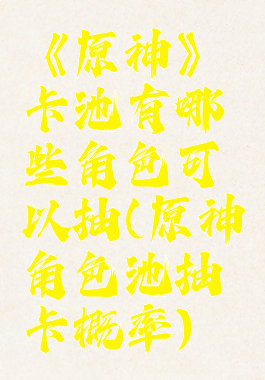 《原神》
卡池有哪
些角色可
以抽(原神
角色池抽
卡概率)